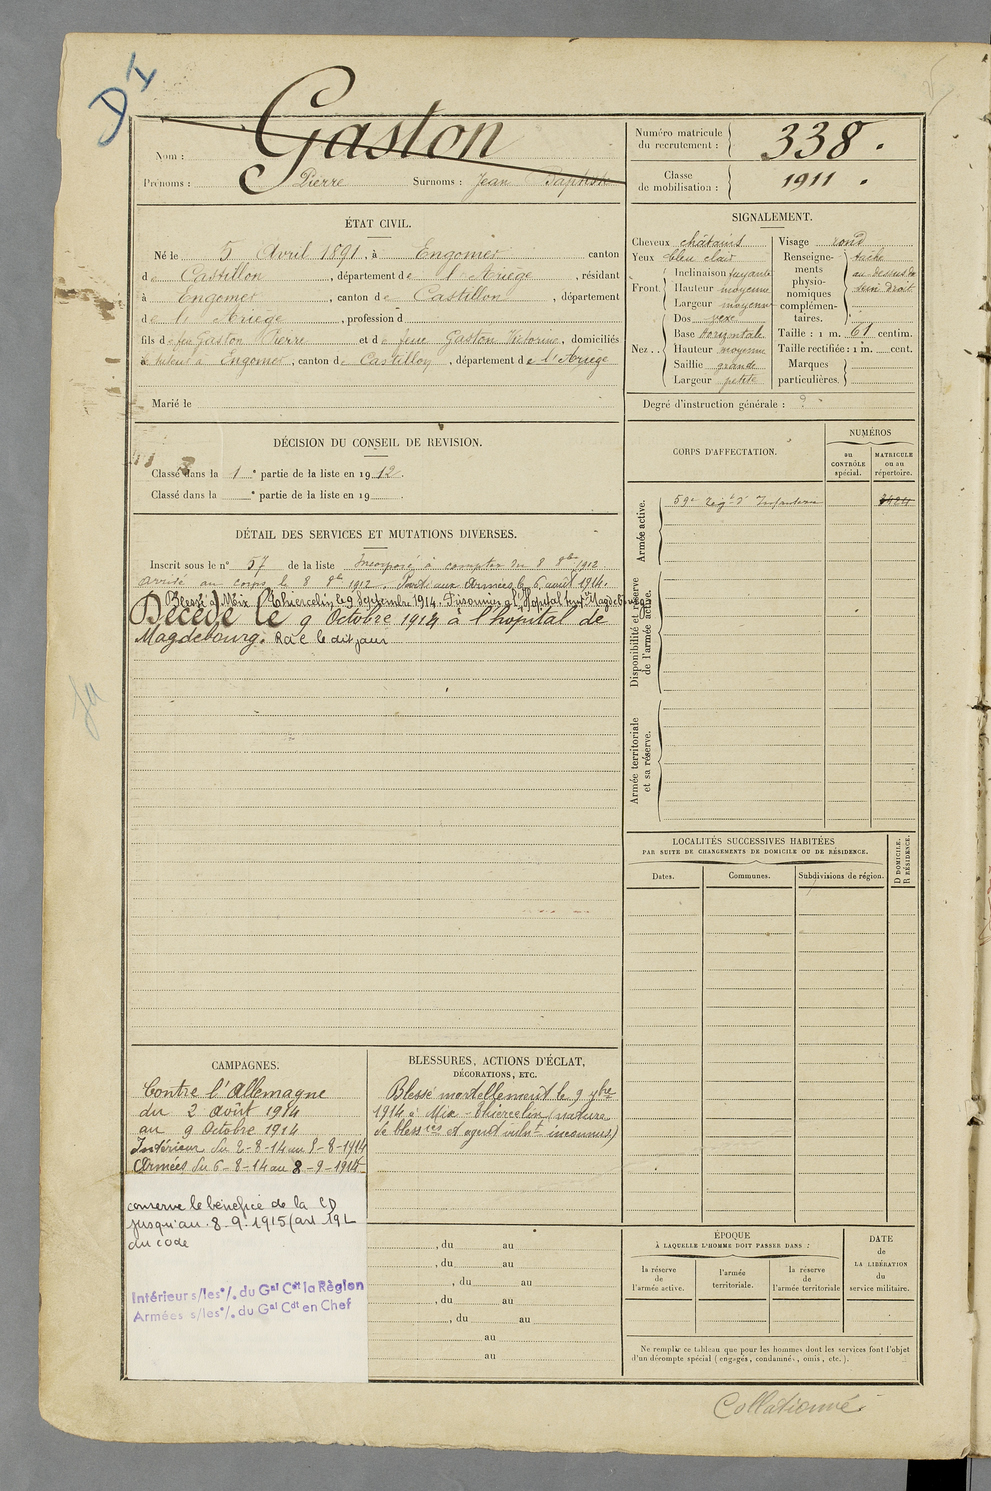 D I
Nom : Gaston
Prénoms : Pierre Surnoms : Jean Baptiste
Numéro matricule du recrutement : 338.
Classe de mobilisation : 1911.
ÉTAT CIVIL.
Né le 5 Avril 1891, à Engomer canton
de Castillon, département de l'Ariège, résidant
à Engomer, canton de Castillon, département
de l'Ariège, profession d
fils de feu Gaston Pierre et de feue Gaston Victorine, domiciliés
à Engomer, canton de Castillon, département de l'Ariège
Marié le
SIGNALEMENT.
Cheveux châtains
Yeux bleu clair
Front. Inclinaison fuyante
Hauteur moyenne
Largeur moyenne
Nez.. Dos vexe
Base horizontale
Hauteur moyenne
Saillie grande
Largeur petite
Visage rond
Renseignements physionomiques complémentaires. tache
au-dessus du
sein droit
Taille : 1 m. 61 centim.
Taille rectifiée : 1 m. cent.
Marques particulières.
Degré d'instruction générale : ?
DÉCISION DU CONSEIL DE REVISION.
Classé dans la 1e partie de la liste en 1912.
Classé dans la e partie de la liste en 19 .
DÉTAIL DES SERVICES ET MUTATIONS DIVERSES.
Inscrit sous le n° 57 de la liste Incorporé à compter du 8 8bre 1912
arrivé au corps le 8 8bre 1912. Parti aux Armées le 6 août 1914.
Blessé à Mix Thiercelin le 9 Septembre 1914. Prisonnier
Décédé le 9 Octobre 1914 à l'hôpital de
Magdebourg. Raé le dit jour
CORPS D'AFFECTATION.
NUMÉROS
au CONTRÔLE spécial.
MATRICULE ou au répertoire.
Armée active.
59e Régt d'Infanterie
Disponibilité et réserve de l'armée active.
Armée territoriale et sa réserve.
LOCALITÉS SUCCESSIVES HABITÉES
PAR SUITE DE CHANGEMENTS DE DOMICILE OU DE RÉSIDENCE.
Dates.
Communes.
Subdivisions de région.
D DOMICILE.
R RÉSIDENCE.
CAMPAGNES.
Contre l'Allemagne
du 2 août 1914
au 9 Octobre 1914
Intérieur du 2-8-14 au 5-8-1914
Armées du 6-8-14 au 8-9-1914
conserve le bénéfice de la CD
jusqu'au 8-9-1915 (art 19 L
du code
Intérieur s/les °/. du Gal Cdt la Région
Armées s/les °/. du Gal Cdt en Chef
BLESSURES, ACTIONS D'ÉCLAT,
DÉCORATIONS, ETC.
Blessé mortellement le 9 7bre
1914 à Mix-Thiercelin (nature
de bless res et agent vulnt inconnus)
, du au
, du au
, du au
, du au
, du au
au
au
ÉPOQUE
À LAQUELLE L'HOMME DOIT PASSER DANS :
la réserve de l'armée active.
l'armée territoriale.
la réserve de l'armée territoriale
DATE
de
LA LIBÉRATION
du
service militaire.
Ne remplir ce tableau que pour les hommes dont les services font l'objet
d'un décompte spécial (engagés, condamnés, omis, etc.).
Collationné.